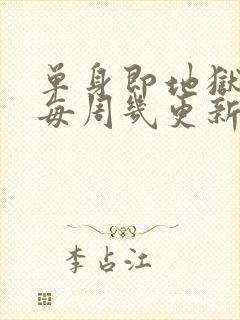 单身即地獄
每周幾更新
李占江